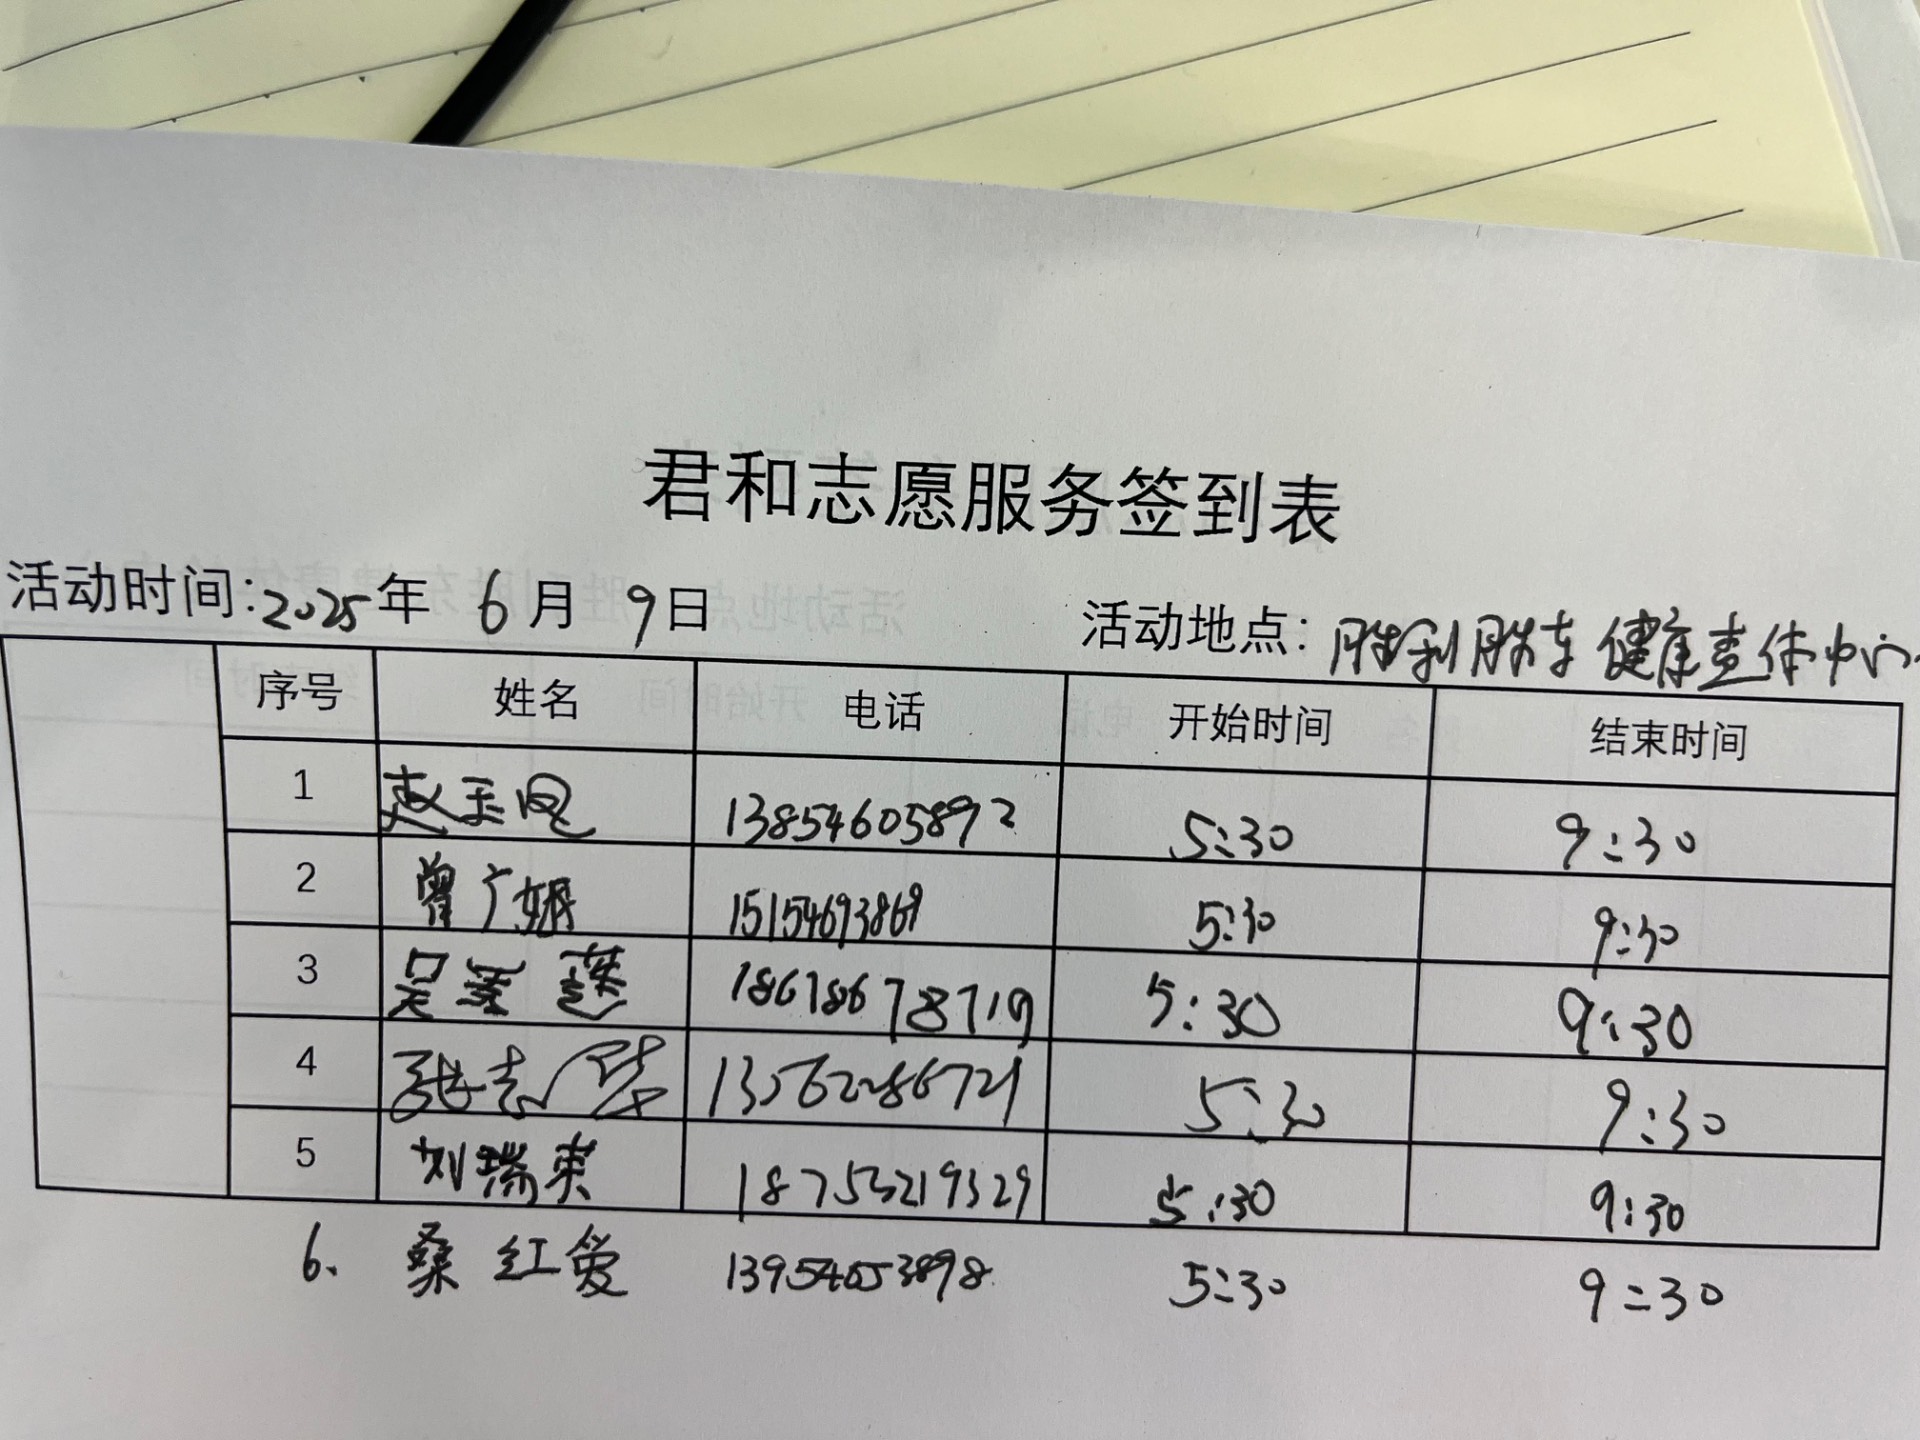 君和志愿服务签到表
活动时间:2025年 6月 9日 活动地点: 胜利胜东健康查体中心
序号 姓名 电话 开始时间 结束时间
1 赵玉凤 13854605892 5:30 9:30
2 曾广娟 15154693869 5:30 9:30
3 吴 5:30 9:30
4 张志 13562286721 5:30 9:30
5 刘瑞英 18753219329 5:30 9:30
6. 桑红爱 13954653898 5:30 9:30